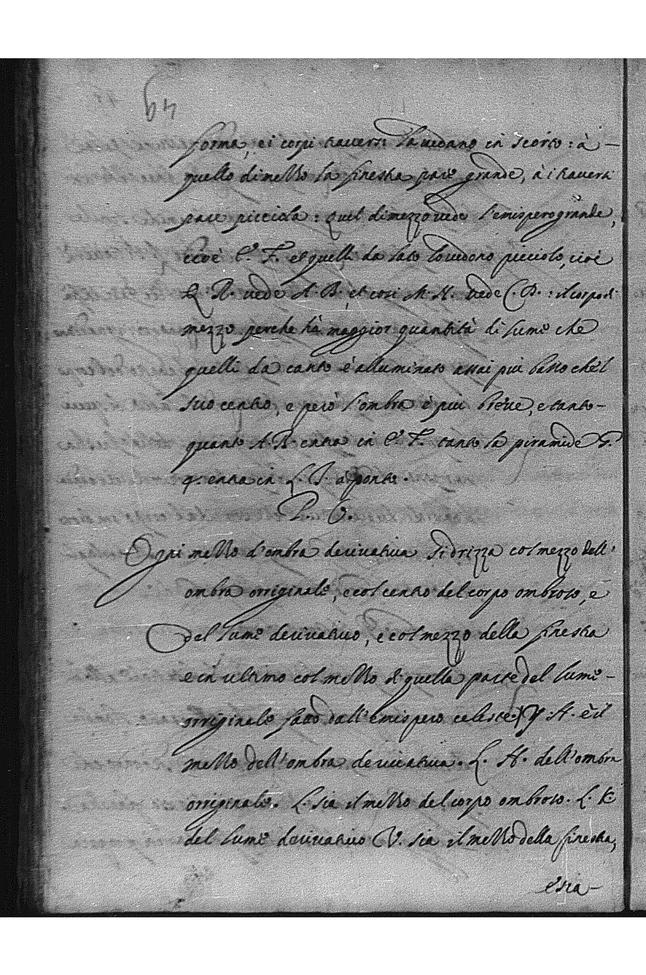 49
forma, e i corpi traversi la vedano in scorto: à
quello di mezzo la finestra pare grande, à i traversi
pare picciola: quel di mezzo vede l'emispero grande,
cioè E. F. et quelli da lato lo vedono picciolo, cioè
Q. R. vede A. B, et così M. N. vede C. D: il corpo di
mezzo perche hà maggior quantità di lume che
quelli da canto è alluminato assai più basso ch'el
suo centro, e però l'ombra è più breve, e tanto
quanto A. B. entra in E. F. tanto la piramide G.
4. entra in L. apponto.
Ogni mezzo d'ombra derivativa si drizza col mezzo dell'
ombra originale, e col centro del corpo ombroso, e
del lume derivativo, e col mezzo della finestra
e in ultimo col mezzo di quella parte del lume
originale fatto dall'emispero celeste. Y. A. è il
mezzo dell'ombra derivativa. L. H. dell'ombra
originale. L. sia il mezzo del corpo ombroso. L. K
del lume derivativo V. sia il mezzo della finestra,
e sia